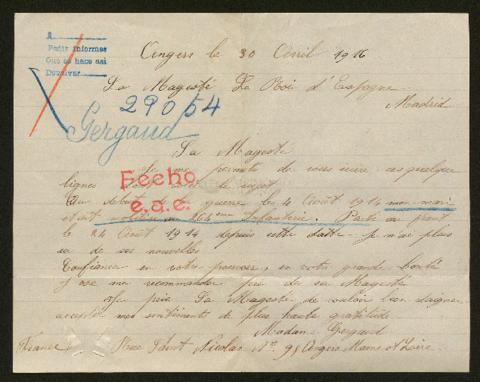 A
Pedir informes
Que se hace así
Devolver
Angers le 30 Avril 1916
Sa Magesté Le Roi d'Espagne
Madrid
29054
Gergaud
Sa Magesté
Je me permets de vous écrire ces quelques
lignes
Fecho
e.a.e.
Au début guerre le 4 Août 1914 mon mari
était Infanterie. Parti
le 24 Août 1914 depuis cette datte Je n'ai plus
eu de ses nouvelles
Confiance en votre , en votre grande bonté
J'ose me recommander de sa Magesté
Je prie Sa Magesté de vouloir bien daigner
accepter mes sentiments de plus haute gratitude
Madame Gergaud
France Rue Saint Nicolas No 91 Angers Maine et Loire